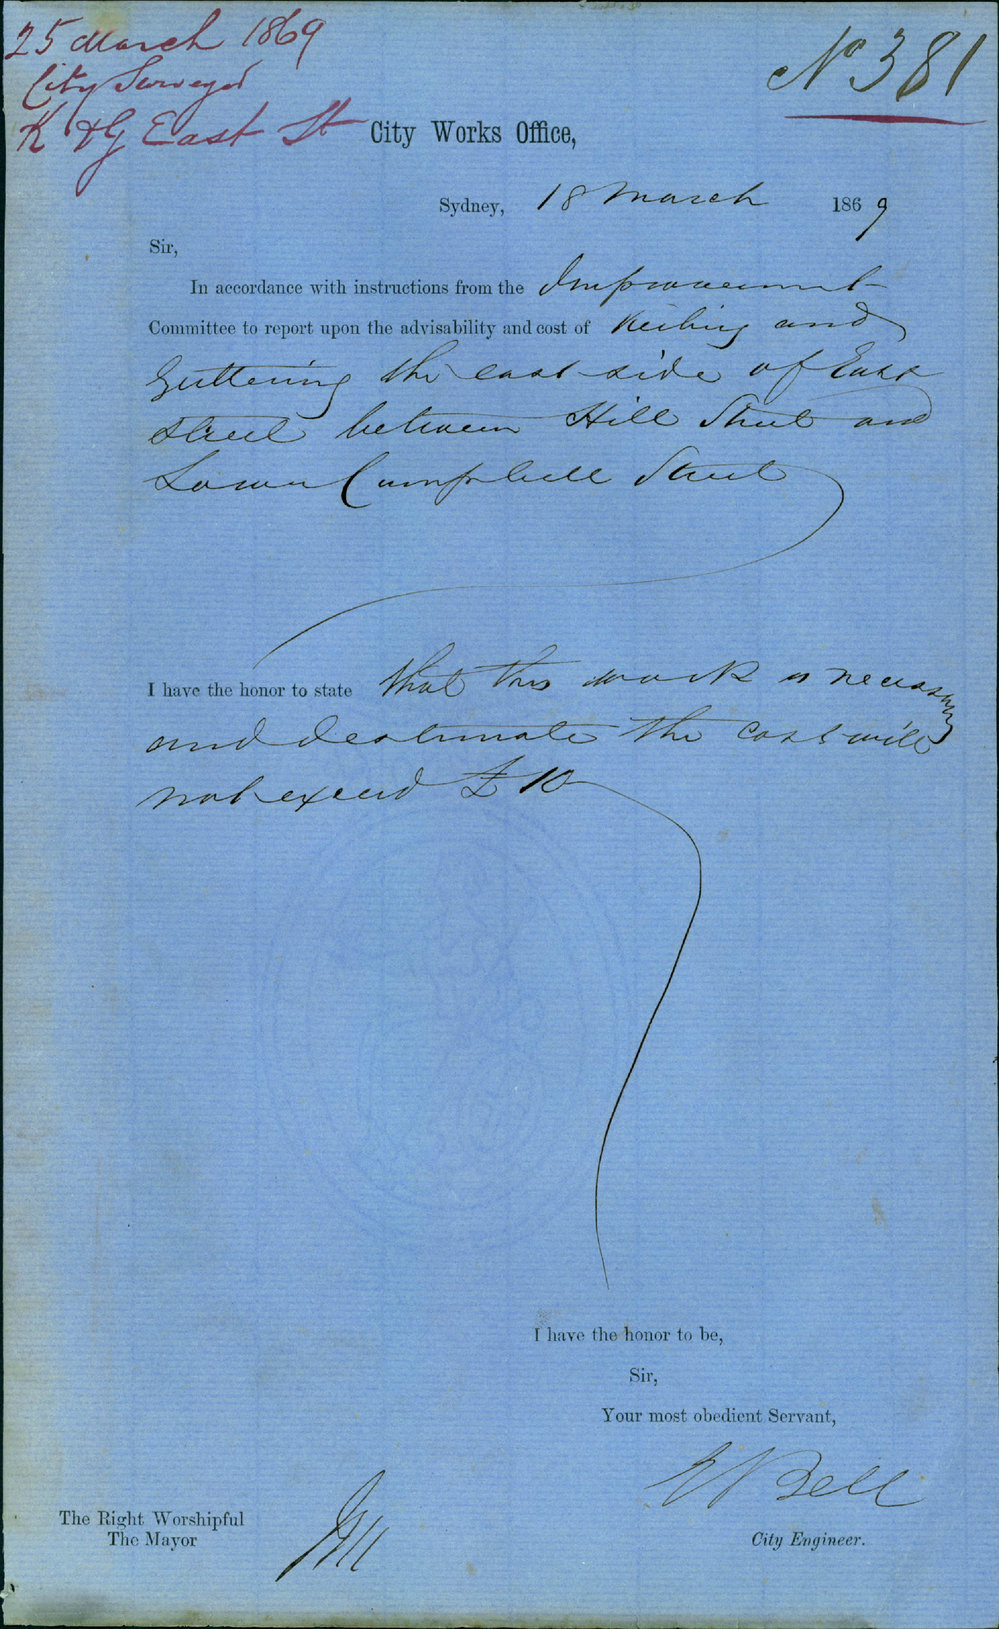 25 March 1869
City Surveyor
K & G East St
No 381
City Works Office,
Sydney, 18 March 1869
Sir,
In accordance with instructions from the Improvement
Committee to report upon the advisability and cost of Kerbing and
Guttering the east side of East
Street between Hill Street and
Lower Campbell Street
I have the honor to state that this work is necessary
and I estimate the cost will
not exceed £10
I have the honor to be,
Sir,
Your most obedient Servant,
E Bell
The Right Worshipful
The Mayor
City Engineer.